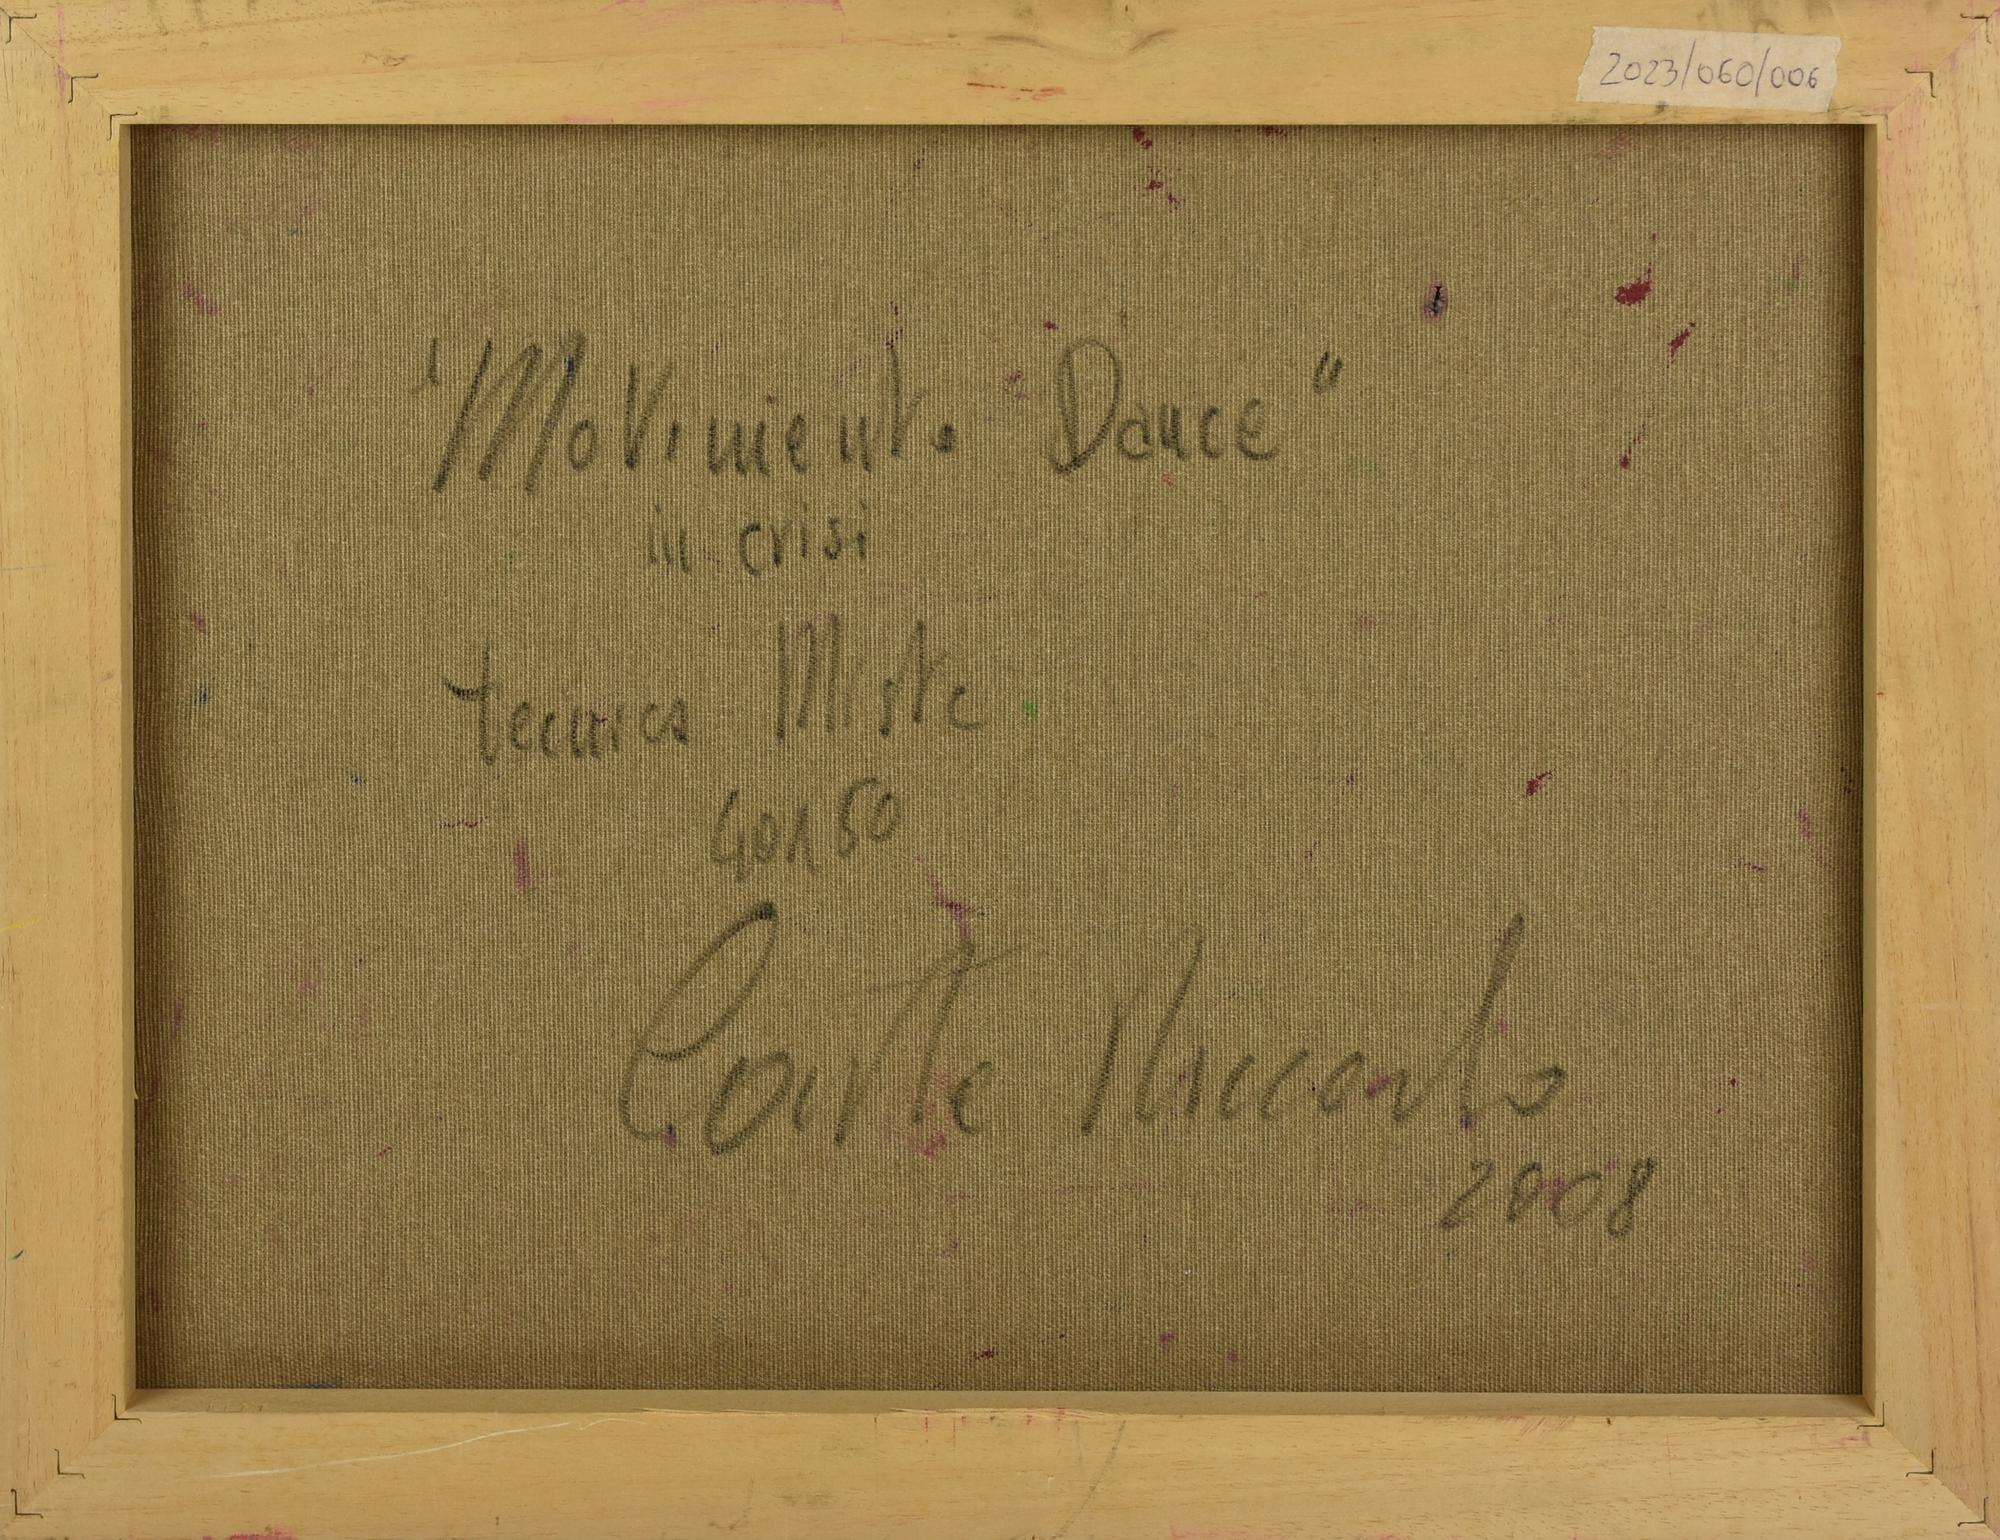 2023/060/006
"Movimento Dance"
in crisi
tecnica Miste
40x50
Conte Riccardo
2008